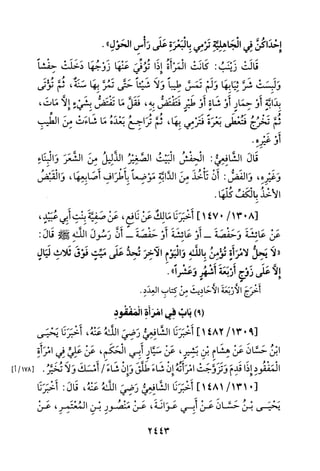 إِحْدَاكُنَّ فِي الْجَاهِلِيَّةِ تَرْمِي بِالْبَعْرَةِ عَلَى رَأْسِ الْحَوْلِ».
قَالَتْ زَيْنَبُ: كَانَتْ الْمَرْأَةُ إِذَا تُوُفِّيَ عَنْهَا زَوْجُهَا دَخَلَتْ حِفْشاً
وَلَبِسَتْ شَرَّ ثِيَابِهَا وَلَمْ تَمَسَّ طِيباً وَلَا شَيْئاً حَتَّى تَمُرَّ بِهَا سَنَةٌ، ثُمَّ تُؤْتَى
بِدَابَّةٍ حِمَارٍ أَوْ شَاةٍ أَوْ طَيْرٍ فَتَقْتَضُّ بِهِ، فَقَلَّ مَا تَقْتَضُّ بِشَيْءٍ إِلَّا مَاتَ،
ثُمَّ تَخْرُجُ فَتُعْطَى بَعْرَةً فَتَرْمِي بِهَا، ثُمَّ تُرَاجِعُ بَعْدَهُ مَا شَاءَتْ مِنَ الطِّيبِ
أَوْ غَيْرِهِ.
قَالَ الشَّافِعِيُّ: الْحِفْشُ الْبَيْتُ الصَّغِيْرُ الذَّلِيلُ مِنَ الشَّعَرِ وَالْبِنَاءِ
وَغَيْرِهِ، وَالْقَبْصُ: أَنْ تَأْخُذَ مِنَ الدَّابَّةِ مَوْضِعاً بِأَطْرَافِ أَصَابِعِهَا، وَالْقَبْضُ
الْأَخْذُ بِالْكَفِّ كُلِّهَا.
[١٣٠٨/ ١٤٧٠] أَخْبَرَنَا مَالِكٌ عَنْ نَافِعٍ، عَنْ صَفِيَّةَ بِنْتِ أَبِي عُبَيْدٍ،
عَنْ عَائِشَةَ وَحَفْصَةَ - أَوْ عَائِشَةَ أَوْ حَفْصَةَ - أَنَّ رَسُولَ اللهِ ﷺ قَالَ:
«لَا يَحِلُّ لِامْرَأَةٍ تُؤْمِنُ بِاللهِ وَالْيَوْمِ الْآخِرَ تُحِدُّ عَلَى مَيِّتٍ فَوْقَ ثَلَاثِ لَيَالٍ
إِلَّا عَلَى زَوْجٍ أَرْبَعَةَ أَشْهُرٍ وَعَشْراً».
أَخْرَجَ الْأَرْبَعَةَ الْأَحَادِيثَ مِنْ كِتَابِ الْعِدَدِ.
(٩) بَابٌ فِي امْرَأَةِ الْمَفْقُودِ
[١٣٠٩/ ١٤٨٢] أَخْبَرَنَا الشَّافِعِيُّ رَضِيَ اللهُ عَنْهُ، أَخْبَرَنَا يَحْيَى
ابْنُ حَسَّانَ عَنْ هِشَامِ بْنِ بَشِيرٍ، عَنْ سَيَّارٍ أَبِي الْحَكَمِ، عَنْ عَلِيٍّ فِي امْرَأَةِ
الْمَفْقُودِ إِذَا قَدِمَ وَتَزَوَّجَتْ امْرَأَتُهُ إِنْ شَاءَ طَلَّقَ وَإِنْ شَاءَ/ أَمْسَكَ وَلَا تُخَيَّرُ. [١٧٨/ أ]
[١٣١٠/ ١٤٨١] أَخْبَرَنَا الشَّافِعِيُّ رَضِيَ اللهُ عَنْهُ، قَالَ: أَخْبَرَنَا
يَحْيَـى بْـنُ حَسَّـانَ عَـنْ أَبـِي عَـوَانَـةَ، عَـنْ مَنْصُـورِ بْـنِ الْمُعْتَمِـرِ، عَـنْ
٢٤٤٣